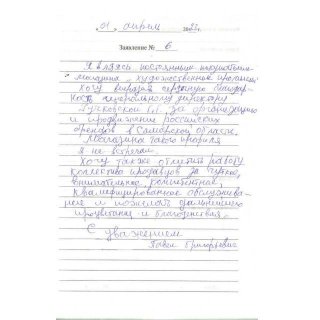 " 01 " апрель 20 г.
Заявление № 6
Я являюсь постоянным покупателем
магазина „художественные промыслы"
Хочу выразить сердечную благодар-
ность генеральному директору
за организацию
и продвижение российских
брендов в Самарской области.
Магазина такого профиля
я не встречал.
Хочу также отметить работу
коллектива продавцов за чуткое,
внимательное, компетентное,
квалифицированное обслужива-
ние и пожелать дальнейшего
процветания и благоденствия.
С уважением
Павел Григорьевич